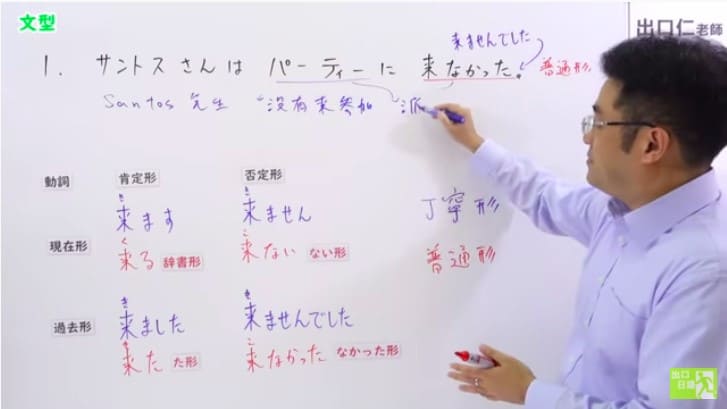 文型
出口仁老師
来ませんでした
1. サントス さん は パーティー に 来 なかった。 普通形
Santos 先生 没有来參加 派
動詞 肯定形 否定形
き き
来ます 来ません 丁寧形
現在形
く こ
来る 辞書形 来ない ない形 普通形
き き
過去形 来ました 来ませんでした
き こ
来た た形 来なかった なかった形
出口
日語